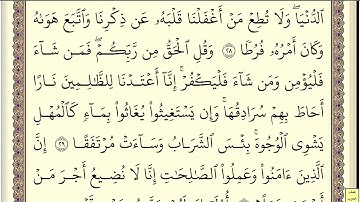 ٱلدُّنْيَا ۖ وَلَا تُطِعْ مَنْ أَغْفَلْنَا قَلْبَهُۥ عَن ذِكْرِنَا وَٱتَّبَعَ هَوَىٰهُ
وَكَانَ أَمْرُهُۥ فُرُطًا ٢٨ وَقُلِ ٱلْحَقُّ مِن رَّبِّكُمْ ۖ فَمَن شَآءَ
فَلْيُؤْمِن وَمَن شَآءَ فَلْيَكْفُرْ ۚ إِنَّآ أَعْتَدْنَا لِلظَّٰلِمِينَ نَارًا
أَحَاطَ بِهِمْ سُرَادِقُهَا ۚ وَإِن يَسْتَغِيثُوا۟ يُغَاثُوا۟ بِمَآءٍ كَٱلْمُهْلِ
يَشْوِى ٱلْوُجُوهَ ۚ بِئْسَ ٱلشَّرَابُ وَسَآءَتْ مُرْتَفَقًا ٢٩ إِنَّ
ٱلَّذِينَ ءَامَنُوا۟ وَعَمِلُوا۟ ٱلصَّٰلِحَٰتِ إِنَّا لَا نُضِيعُ أَجْرَ مَنْ